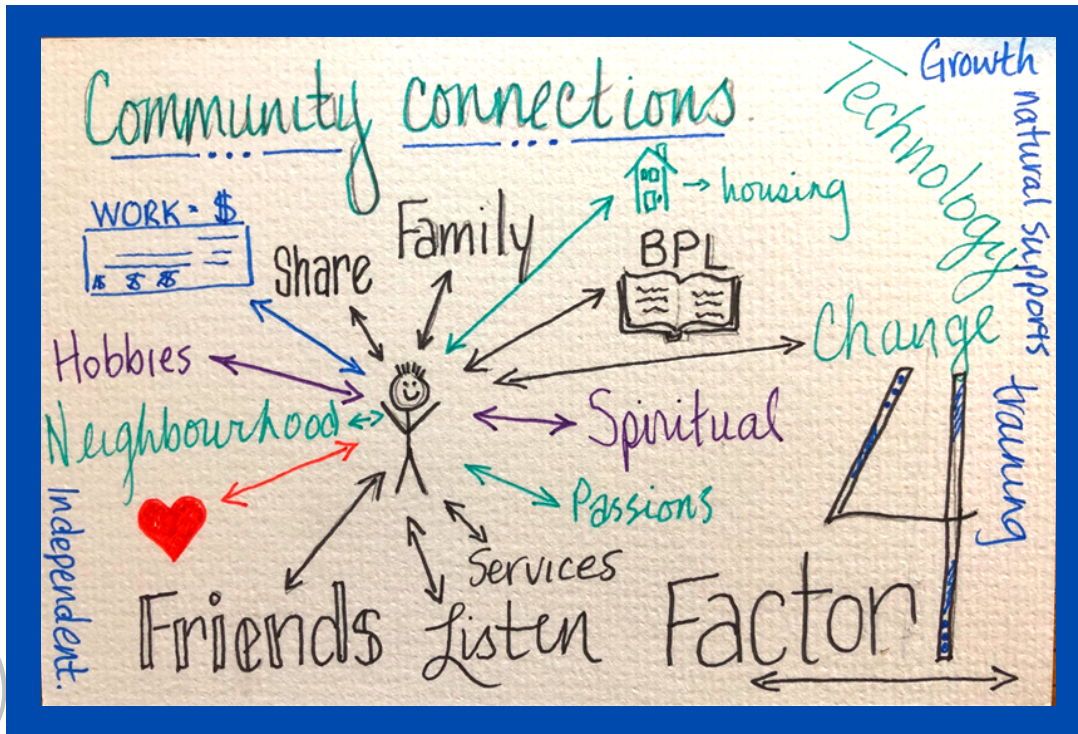 Community connections.
Growth
Technology
natural supports
training
WORK = $
$ $ $$
Share
Family
→ housing
BPL
Change
Hobbies
Neighbourhood
Spiritual
Passions
Independent.
Services
Friends
Listen
Factor 4